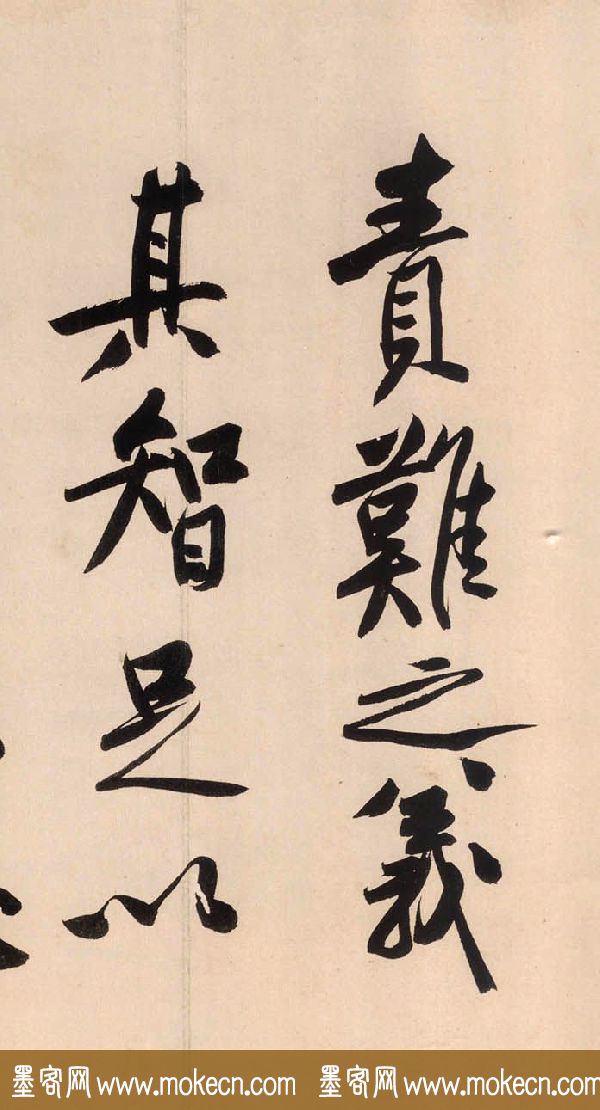 責難之義
其智足以
墨客网 www.mokecn.com 墨客网 www.mokecn.com